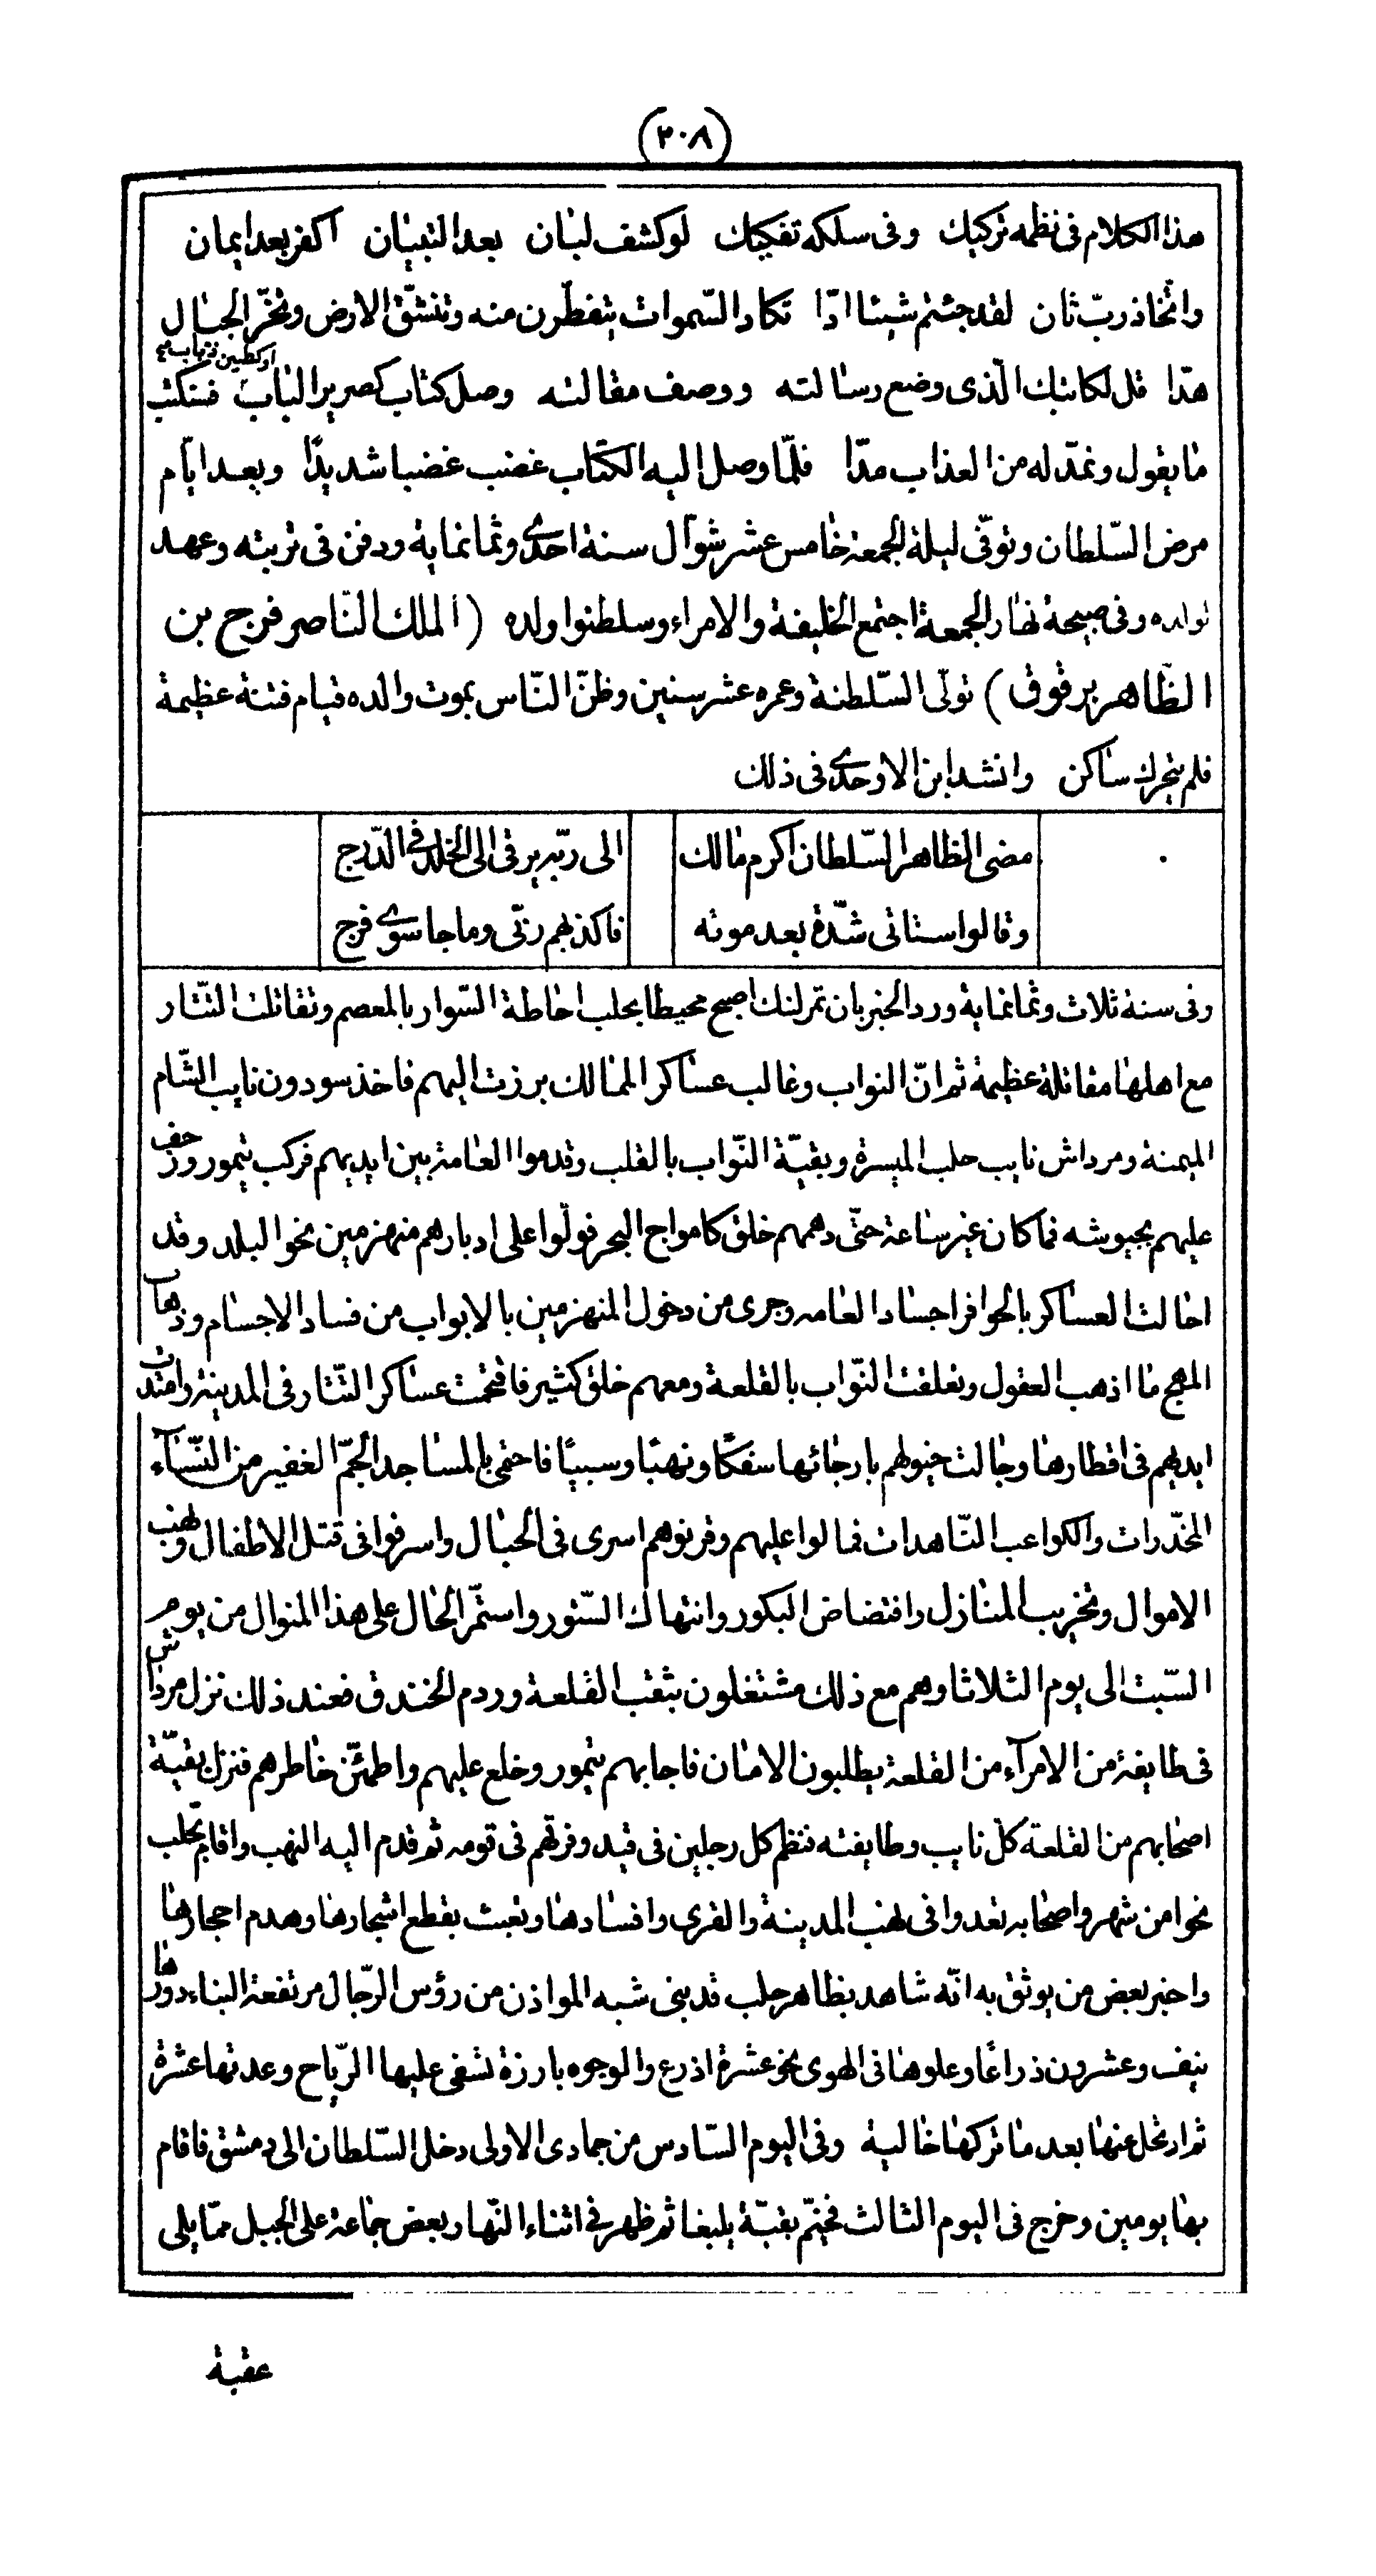 (٢٠٨)
هذا الكلام فى نظمه تركيك وفى سلكه تفكيك لو كشف لبان بعد التبيان أكفر بعد ايمان
واتخاذ ربّ ثان لقد جئتم شيئا ادّا تكاد السّموات يتفطّرن منه وتنشقّ الارض وتخرّ الجبال
هدّا قل لكاتبك الّذى وضع رسالته ووصف مقالته وصل كتاب كصرير الباب او كطنين ذباب سنكتب
ما يقول ونمدّ له من العذاب مدّا فلمّا وصل اليه الكتاب غضب غضبا شديدًا وبعد ايّام
مرض السّلطان وتوفّى ليلة الجمعة خامس عشر شوّال سنة احدى وثمانماية ودفن فى تربته وعهد
لولده وفى صبيحة نهار الجمعة اجتمع الخليفة والامراء وسلطنوا ولده (الملك النّاصر فرج بن
الظّاهر برقوق) تولّى السّلطنة وعمره عشر سنين وظنّ النّاس بموت والده قيام فتنة عظيمة
فلم يتحرك ساكن وانشد ابن الاوحدى فى ذلك
مضى الظاهر السّلطان اكرم مالك الى ربّه يرقى الى الخلد فى الدّرج
وقالوا ستاتى شدّة بعد موته فاكذبهم ربّى وما جا سوى فرج
وفى سنة ثلاث وثمانماية ورد الخبر بان تمرلنك اصبح محيطا بحلب احاطة السّوار بالمعصم وتقاتلت التّتار
مع اهلها مقاتلة عظيمة ثم انّ النواب وغالب عساكر الممالك برزت اليهم فاخذ سودون نايب الشّام
الميمنة ومرداش نايب حلب الميسرة وبقيّة النّواب بالقلب وقدموا العامة بين ايديهم فركب تيمور وزحف
عليهم بجيوشه فما كان غير ساعة حتّى دهمهم خلق كامواج البحر فولّوا على ادبارهم منهزمين نحو البلد وقد
احالت العساكر بالحوافر اجساد العامه وجرى من دخول المنهزمين بالابواب من فساد الاجسام وذهاب
المهج ما اذهب العقول وتعلقت النّواب بالقلعة ومعهم خلق كثير فاقتحمت عساكر التّتار فى المدينة وامتدت
ايديهم فى اقطارها وجالت خيولهم بارجائها سفكًا ونهبًا وسبيًا فاحتمى بالمساجد الجمّ الغفير من النّساء
المخدّرات والكواعب النّاهدات فمالوا عليهم وقرنوهم اسرى فى الحبال واسرفوا فى قتل الاطفال ونهب
الاموال وتخريب المنازل وافتضاض البكور وانتهاك السّتور واستمرّ الحال على هذا المنوال من يوم
السّبت الى يوم الثلاثا وهم مع ذلك مشتغلون بنقب القلعة وردم الخندق فعند ذلك نزل مرداش
فى طايفة من الامرآء من القلعة يطلبون الامان فاجابهم تيمور وخلع عليهم واطمئنّ خاطرهم فنزل بقيّة
اصحابهم من القلعة كلّ نايب وطايفته فنظم كل رجلين فى قيد وفرقهم فى قومه ثم قدم اليه النهب واقام بحلب
نحوا من شهر واصحابه تغدوا فى نهب المدينة والقرى وافسادها وتعبث بقطع اشجارها وهدم احجارها
واخبر بعض من يوثق به انّه شاهد بظاهر حلب قد بنى شبه المواذن من رؤس الرّجال مرتفعة البناء دورها
نيف وعشرون ذراعًا وعلوها فى الهوى نحو عشرة اذرع والوجوه بارزة تسفى عليها الرّياح وعدتها عشرة
ثم ارتحل عنها بعد ما تركها خالية وفى اليوم السّادس من جمادى الاولى دخل السّلطان الى دمشق فاقام
بها يومين وخرج فى اليوم الثالث فخيّم بقبّة يلبغا ثم ظهر فى اثناء النّهار بعض جماعة على الجبل ممّا يلى
عقبة